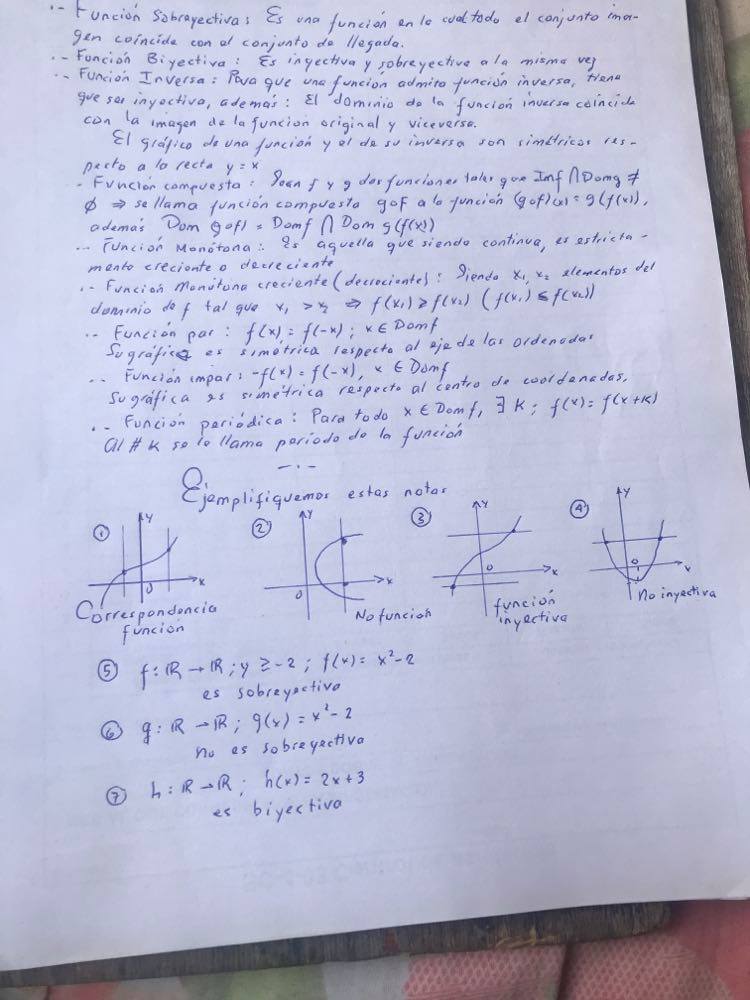 .- Función Sobreyectiva: Es una función en la cual todo el conjunto ima-
gen coincide con el conjunto de llegada.
.- Función Biyectiva: Es inyectiva y sobreyectiva a la misma vez
.- Función Inversa: Para que una función admita función inversa, tiene
que ser inyectiva, además: El dominio de la función inversa coincide
con la imagen de la función original y viceversa.
El gráfico de una función y el de su inversa son simétricos res-
pecto a la recta y = x
.- Función compuesta: Sean f y g dos funciones tales que Imf ∩ Domg ≠
∅ ⇒ se llama función compuesta gof a la función (gof)(x) = g(f(x)),
además Dom (gof) = Domf ∩ Dom g(f(x))
.- Función Monótona: Es aquella que siendo continua, es estricta-
mente creciente o decreciente
.- Función Monótona creciente (decreciente): Siendo x₁, x₂ elementos del
dominio de f tal que x₁ > x₂ ⇒ f(x₁) ≥ f(x₂) (f(x₁) ≤ f(x₂))
.- Función par: f(x) = f(-x); x ∈ Domf
Su gráfica es simétrica respecto al eje de las ordenadas
.- Función impar: -f(x) = f(-x), x ∈ Domf
Su gráfica es simétrica respecto al centro de coordenadas.
.- Función periódica: Para todo x ∈ Domf, ∃ K; f(x) = f(x+K)
Al # K se le llama período de la función
-.-
Ejemplifiquemos estas notas
① y x 0
Correspondencia
función
② y x 0
No función
③ y x 0
función
inyectiva
④ y x 0 1
No inyectiva
⑤ f: ℝ → ℝ; y ≥ -2; f(x) = x² - 2
es sobreyectiva
⑥ g: ℝ → ℝ; g(x) = x² - 2
no es sobreyectiva
⑦ h: ℝ → ℝ; h(x) = 2x + 3
es biyectiva